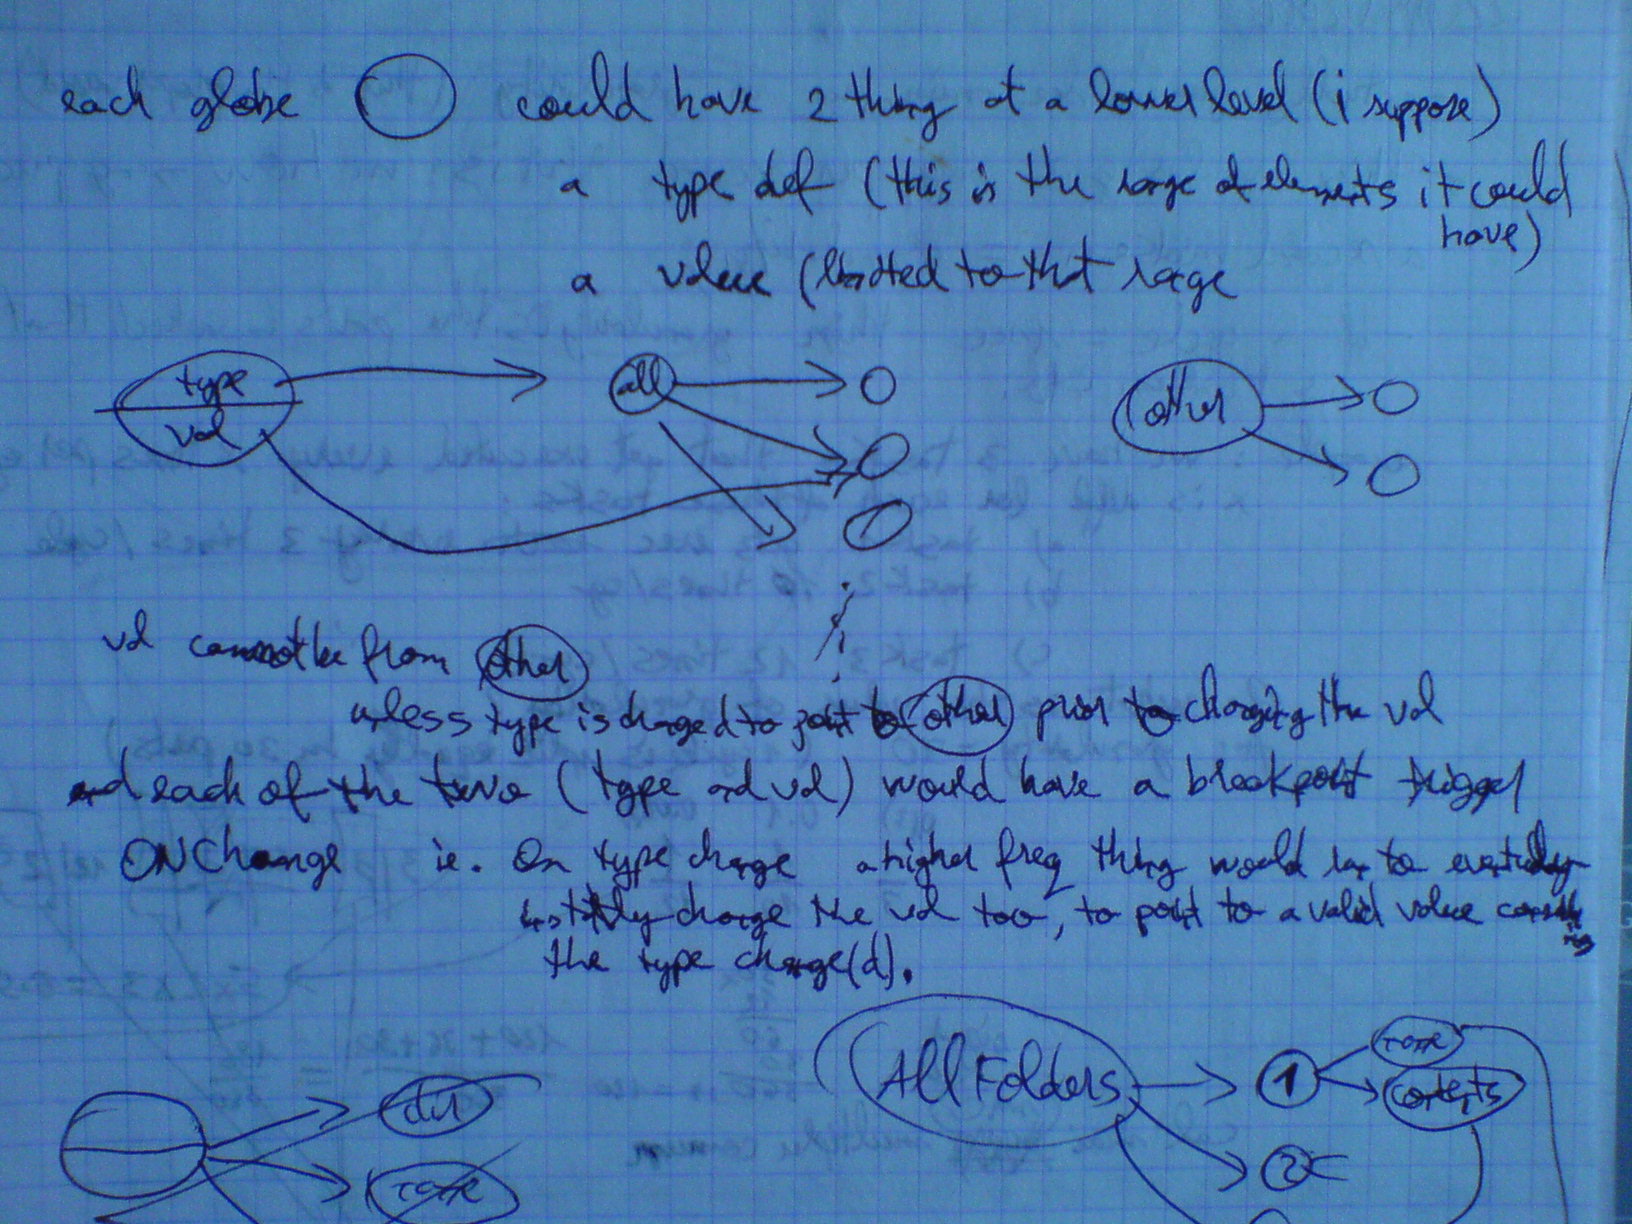 each globe could have 2 thing at a lower level (i suppose)
a type def (this is the range of elements it could
have)
a value (limited to that range
type
val
all
other
val cannot be from other
unless type is changed to point to other prior to changing the val
and each of the two (type and val) would have a breakpoint trigger
ONChange ie. On type change a higher freq thing would run to eventually
instantly change the val too, to point to a valid value considering
the type change(d).
AllFolders
1
name
contents
2
dir
name